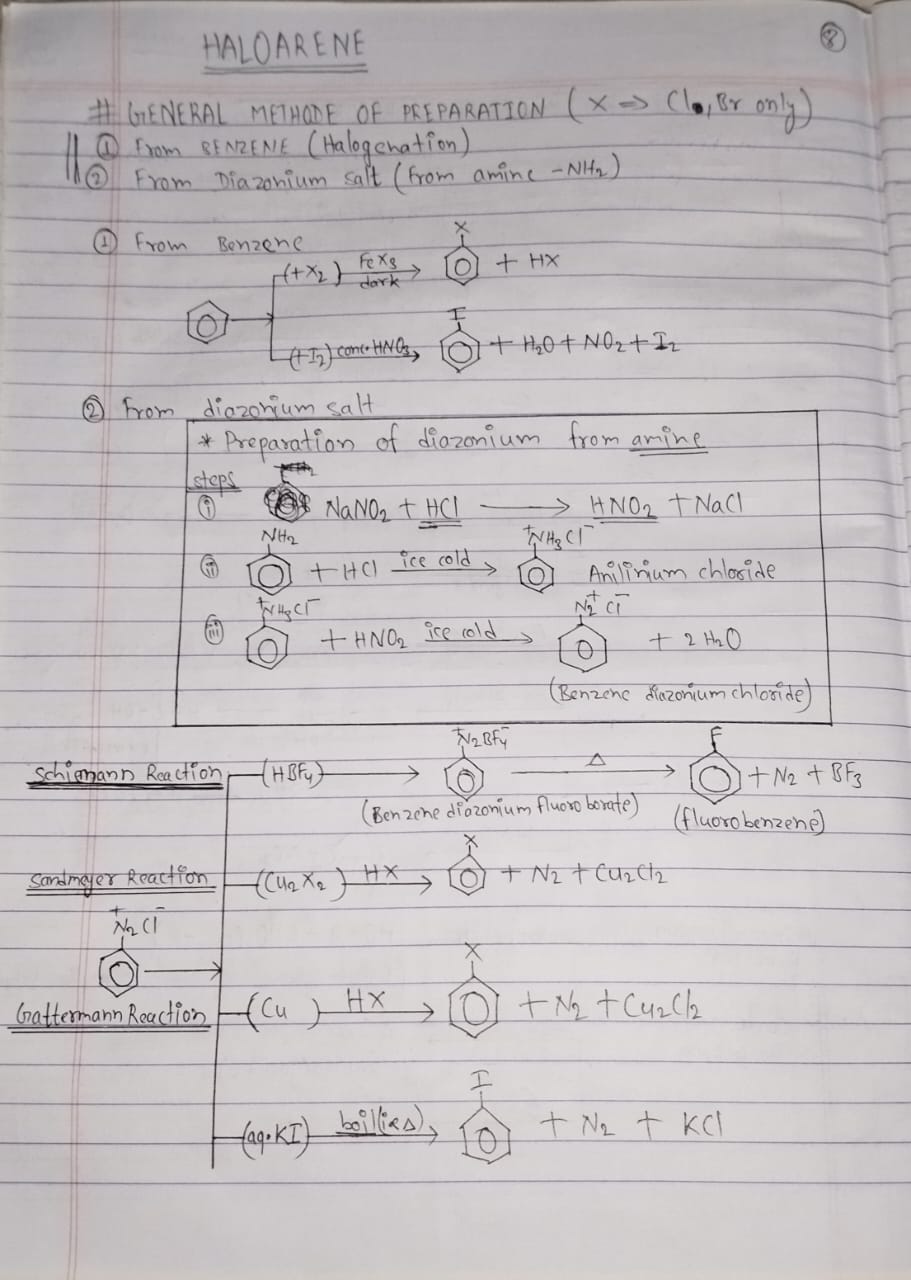 HALOARENE
8
# GENERAL METHODE OF PREPARATION (X ⇒ Cl, Br only)
① From BENZENE (Halogenation)
② From Diazonium salt (from amine -NH₂)
① From Benzene
X
(+X₂) FeX₃ dark → + HX
I
(+I₂) conc·HNO₃ → + H₂O + NO₂ + I₂
② From diazonium salt
* Preparation of diazonium from amine
steps
ⓘ NaNO₂ + HCl → HNO₂ + NaCl
NH₂ ⁺NH₃Cl⁻
ⓘⓘ + HCl ice cold → Anilinium chloride
⁺NH₃Cl⁻ N₂⁺Cl⁻
ⓘⓘⓘ + HNO₂ ice cold → + 2H₂O
(Benzene diazonium chloride)
⁺N₂BF₄⁻ F
Schiemann Reaction (HBF₄) → Δ → + N₂ + BF₃
(Benzene diazonium fluoro borate) (fluorobenzene)
X
Sandmeyer Reaction (Cu₂X₂) HX → + N₂ + Cu₂Cl₂
⁺N₂Cl⁻
X
Gattermann Reaction (Cu) HX → + N₂ + Cu₂Cl₂
I
(aq·KI) boil(ie Δ) → + N₂ + KCl